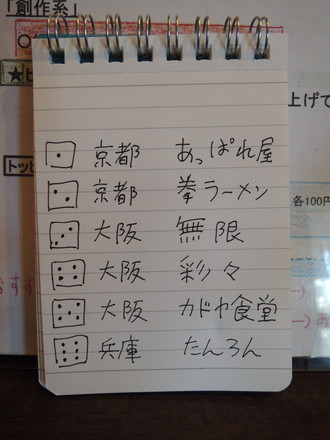 「創作系」
★ビ
上げて
トッピ
各100円
京都 あっぱれ屋
京都 拳ラーメン
大阪 無限
大阪 彩々
大阪 カドヤ食堂
兵庫 たんろん